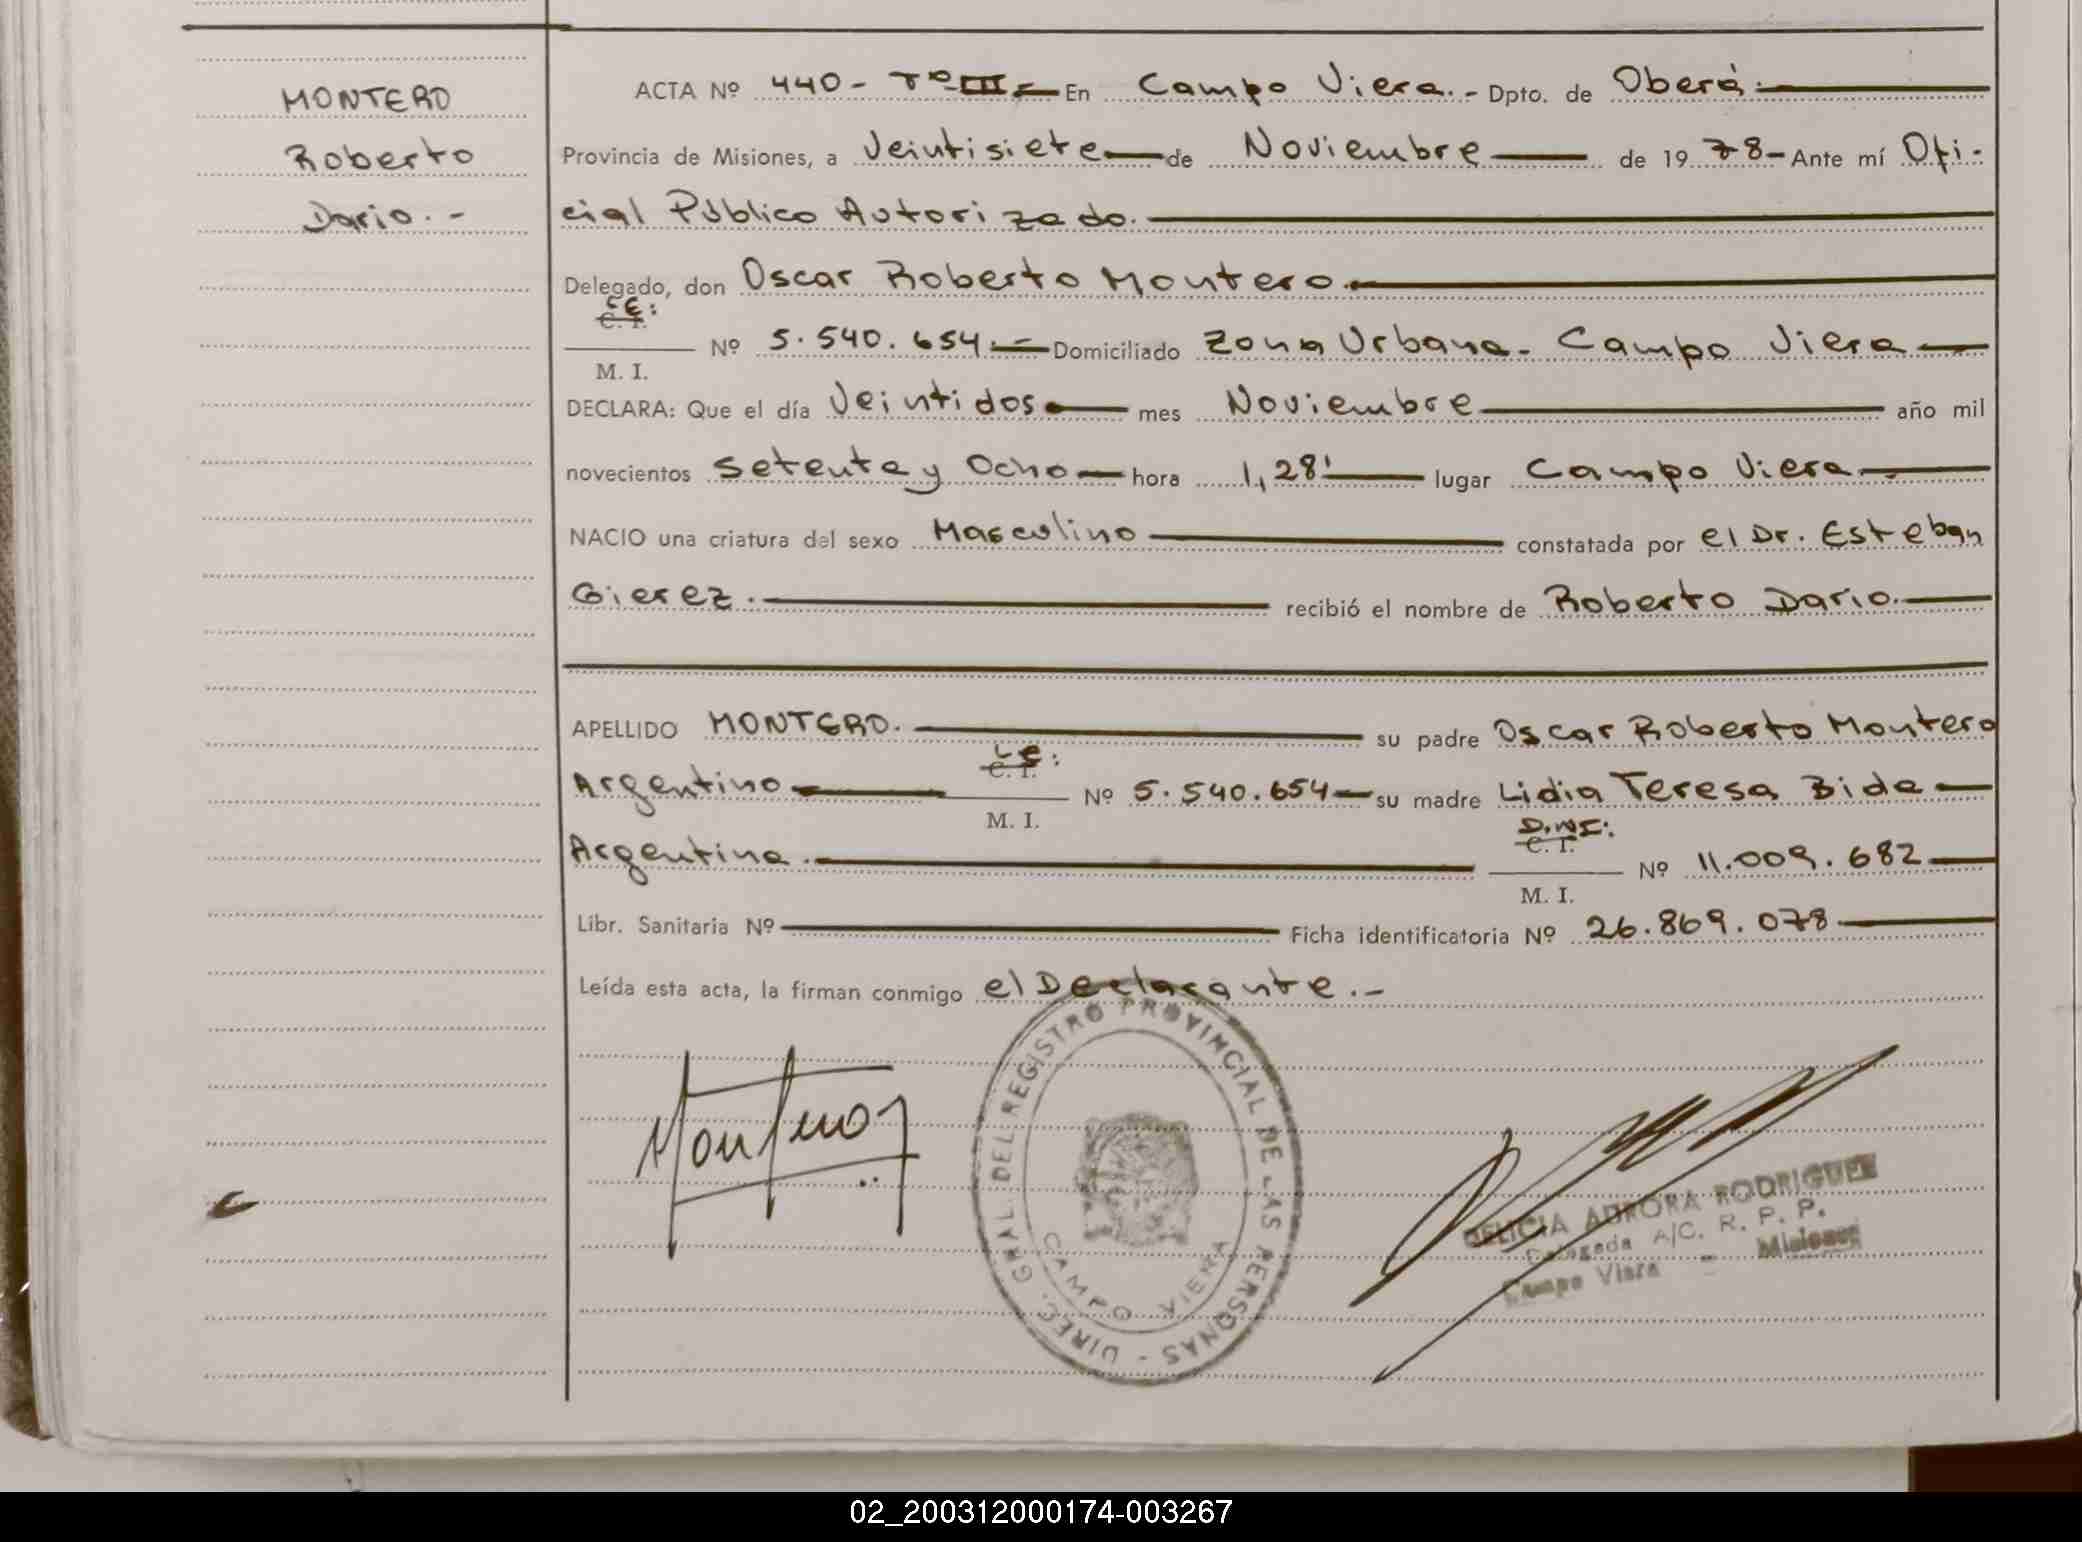 MONTERO
Roberto
Dario.-
ACTA Nº 440- Tº III- En Campo Viera.- Dpto. de Oberá.
Provincia de Misiones, a Veintisiete de Noviembre de 1978- Ante mí Ofi-
cial Público Autorizado.
Delegado, don Oscar Roberto Montero.
L E:
C. I.
Nº 5.540.654.- Domiciliado Zona Urbana- Campo Viera
M. I.
DECLARA: Que el día Veintidos mes Noviembre año mil
novecientos Setenta y Ocho hora 1,28' lugar Campo Viera
NACIO una criatura del sexo Masculino constatada por el Dr. Esteban
Gierez. recibió el nombre de Roberto Dario.
APELLIDO MONTERO. su padre Oscar Roberto Montero
L E:
C. I.
Argentino Nº 5.540.654- su madre Lidia Teresa Bida
M. I.
D.N.I:
C. I.
Argentina. Nº 11.009.682
M. I.
Libr. Sanitaria Nº Ficha identificatoria Nº 26.869.078
Leída esta acta, la firman conmigo el Declarante.-
Montero
DIREC. GRAL. DEL REGISTRO PROVINCIAL DE LAS PERSONAS -
CAMPO VIERA
DELICIA AURORA RODRIGUEZ
Delegada A/C. R. P. P.
Campo Viera - Misiones
02_200312000174-003267